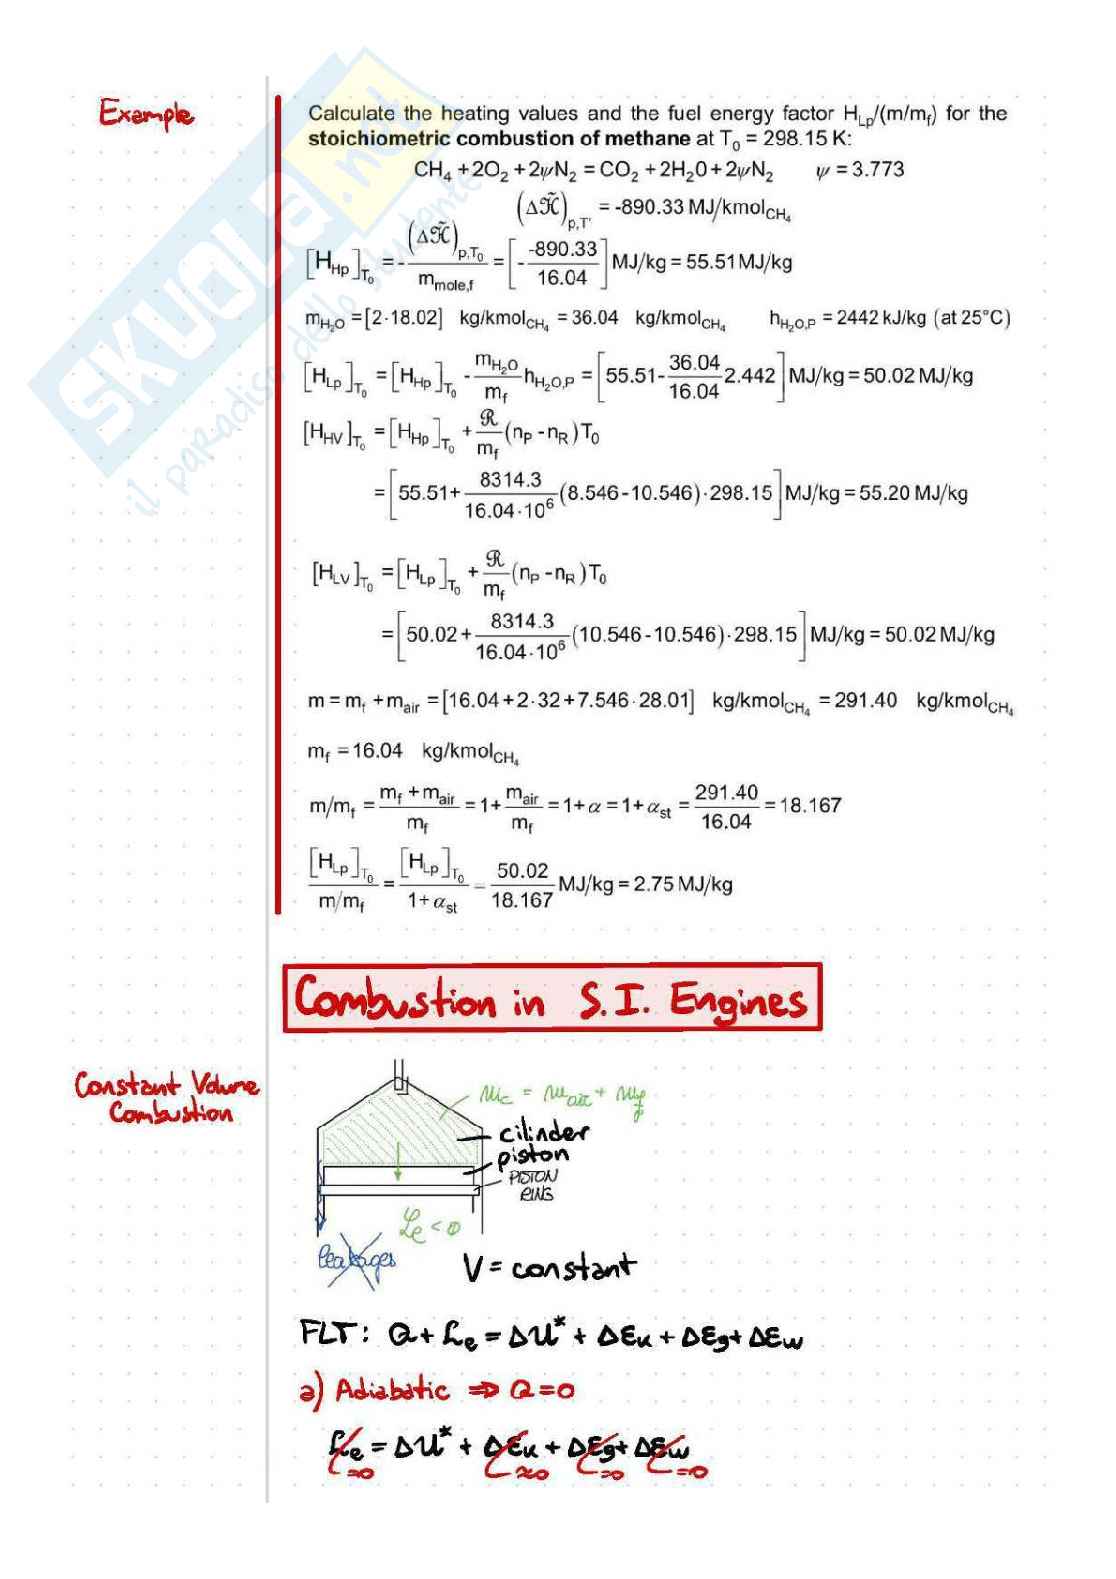 SKUOLA.net
il paradiso dello studente
Example
Calculate the heating values and the fuel energy factor H_Lp/(m/m_f) for the
stoichiometric combustion of methane at T_0 = 298.15 K:
CH_4 +2O_2 +2ψN_2 = CO_2 +2H_20+2ψN_2 ψ = 3.773
(Δℋ̃)_p,T' = -890.33 MJ/kmol_CH4
[H_Hp]_T0 = - (Δℋ̃)_p,T0 / m_mole,f = [- -890.33 / 16.04] MJ/kg = 55.51 MJ/kg
m_H2O = [2·18.02] kg/kmol_CH4 = 36.04 kg/kmol_CH4 h_H2O,P = 2442 kJ/kg (at 25°C)
[H_Lp]_T0 = [H_Hp]_T0 - m_H2O / m_f h_H2O,P = [55.51- 36.04 / 16.04 2.442] MJ/kg = 50.02 MJ/kg
[H_HV]_T0 = [H_Hp]_T0 + ℛ / m_f (n_P - n_R) T_0
= [55.51+ 8314.3 / 16.04·10^6 (8.546-10.546)·298.15] MJ/kg = 55.20 MJ/kg
[H_LV]_T0 = [H_Lp]_T0 + ℛ / m_f (n_P - n_R) T_0
= [50.02+ 8314.3 / 16.04·10^6 (10.546-10.546)·298.15] MJ/kg = 50.02 MJ/kg
m = m_f + m_air = [16.04+2·32+7.546·28.01] kg/kmol_CH4 = 291.40 kg/kmol_CH4
m_f = 16.04 kg/kmol_CH4
m/m_f = m_f + m_air / m_f = 1+ m_air / m_f = 1+ α = 1+ α_st = 291.40 / 16.04 = 18.167
[H_Lp]_T0 / m/m_f = [H_Lp]_T0 / 1+ α_st = 50.02 / 18.167 MJ/kg = 2.75 MJ/kg
Combustion in S.I. Engines
Constant Volume
Combustion
m_c = m_air + m_f
cilinder
piston
PISTON
RING
ℒ_e < 0
leakages
V = constant
FLT: Q + ℒ_e = ΔU* + ΔE_k + ΔE_g + ΔE_w
a) Adiabatic ⇒ Q = 0
ℒ_e = ΔU* + ΔE_k + ΔE_g + ΔE_w
=0 ≈0 =0 =0